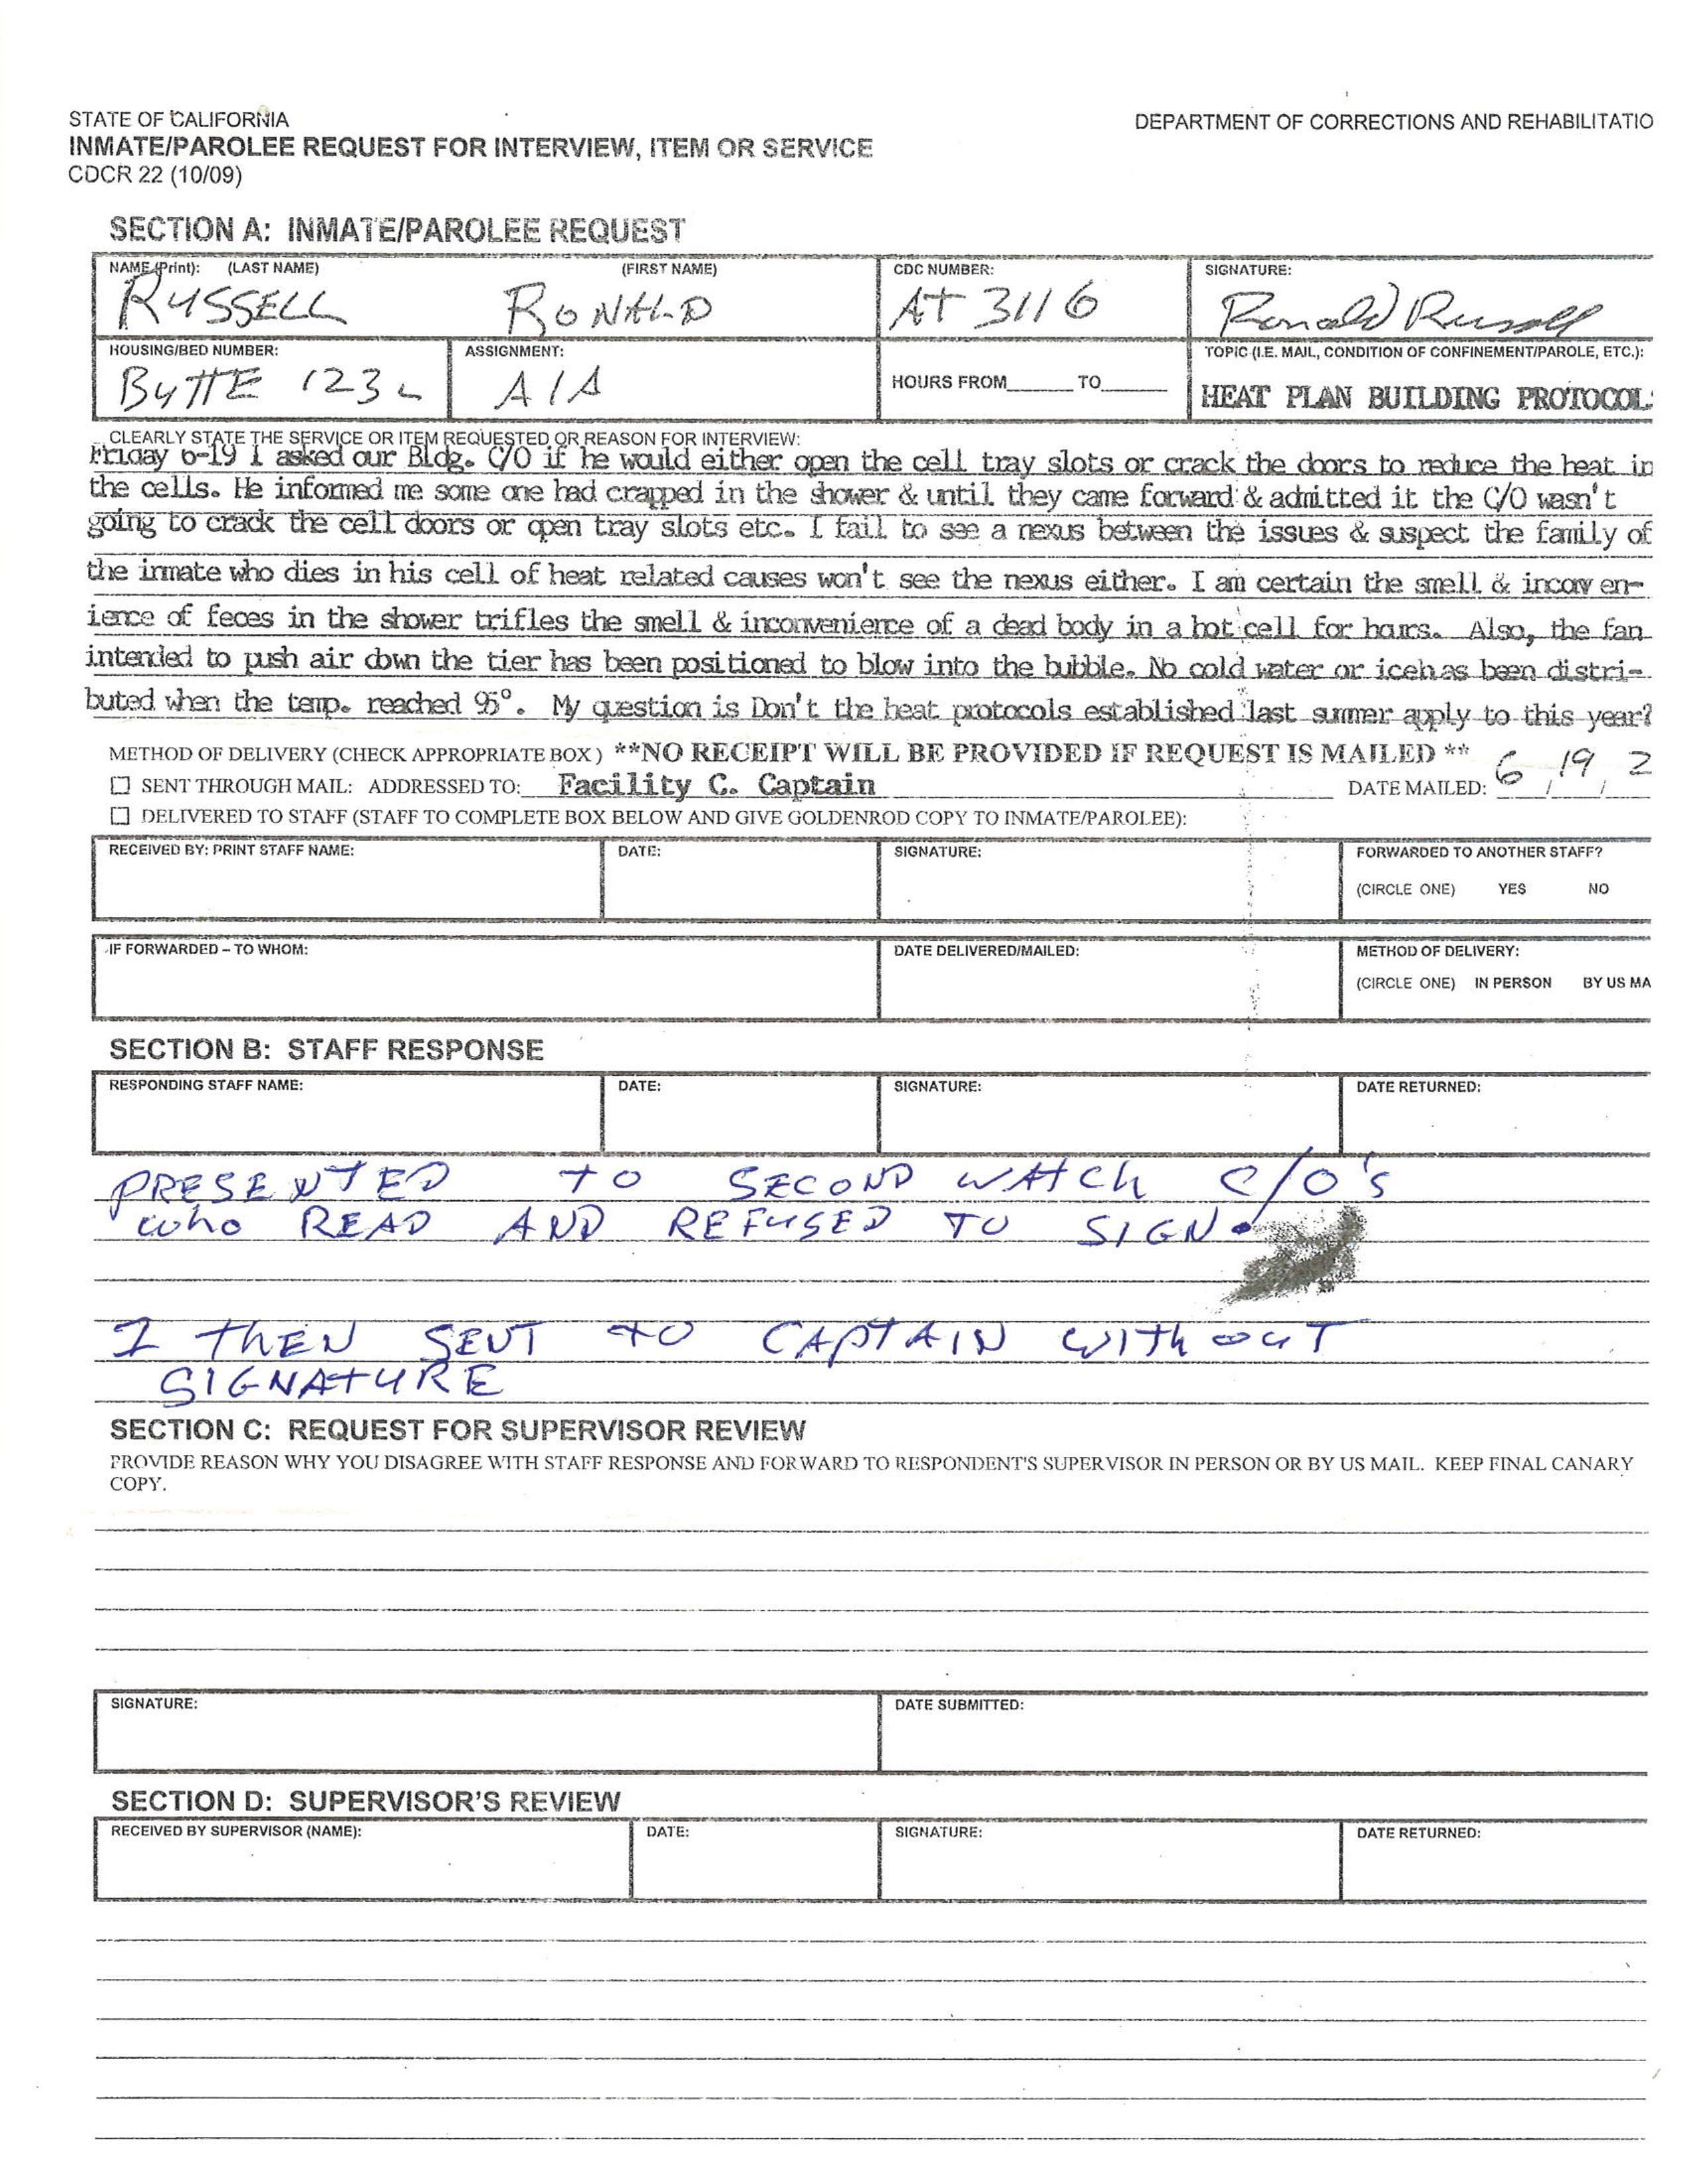 STATE OF CALIFORNIA
DEPARTMENT OF CORRECTIONS AND REHABILITATIO
INMATE/PAROLEE REQUEST FOR INTERVIEW, ITEM OR SERVICE
CDCR 22 (10/09)
SECTION A: INMATE/PAROLEE REQUEST
NAME (Print): (LAST NAME) (FIRST NAME) CDC NUMBER: SIGNATURE:
RUSSELL RONALD AT 3116 Ronald Russell
HOUSING/BED NUMBER: ASSIGNMENT: HOURS FROM______ TO______ TOPIC (I.E. MAIL, CONDITION OF CONFINEMENT/PAROLE, ETC.):
BUTTE 123L A1A HEAT PLAN BUILDING PROTOCOL
CLEARLY STATE THE SERVICE OR ITEM REQUESTED OR REASON FOR INTERVIEW:
Friday 6-19 I asked our Bldg. C/O if he would either open the cell tray slots or crack the doors to reduce the heat in
the cells. He informed me some one had crapped in the shower & until they came forward & admitted it the C/O wasn't
going to crack the cell doors or open tray slots etc. I fail to see a nexus between the issues & suspect the family of
the inmate who dies in his cell of heat related causes won't see the nexus either. I am certain the smell & inconven-
ience of feces in the shower trifles the smell & inconvenience of a dead body in a hot cell for hours. Also, the fan
intended to push air down the tier has been positioned to blow into the bubble. No cold water or ice has been distri-
buted when the temp. reached 95°. My question is Don't the heat protocols established last summer apply to this year?
METHOD OF DELIVERY (CHECK APPROPRIATE BOX) **NO RECEIPT WILL BE PROVIDED IF REQUEST IS MAILED **
☐ SENT THROUGH MAIL: ADDRESSED TO: Facility C. Captain DATE MAILED: 6 / 19 / 2
☐ DELIVERED TO STAFF (STAFF TO COMPLETE BOX BELOW AND GIVE GOLDENROD COPY TO INMATE/PAROLEE):
RECEIVED BY: PRINT STAFF NAME: DATE: SIGNATURE: FORWARDED TO ANOTHER STAFF?
(CIRCLE ONE) YES NO
IF FORWARDED – TO WHOM: DATE DELIVERED/MAILED: METHOD OF DELIVERY:
(CIRCLE ONE) IN PERSON BY US MA
SECTION B: STAFF RESPONSE
RESPONDING STAFF NAME: DATE: SIGNATURE: DATE RETURNED:
PRESENTED TO SECOND WATCH C/O'S
who READ AND REFUSED TO SIGN.
I THEN SENT TO CAPTAIN WITHOUT
SIGNATURE
SECTION C: REQUEST FOR SUPERVISOR REVIEW
PROVIDE REASON WHY YOU DISAGREE WITH STAFF RESPONSE AND FORWARD TO RESPONDENT'S SUPERVISOR IN PERSON OR BY US MAIL. KEEP FINAL CANARY
COPY.
SIGNATURE: DATE SUBMITTED:
SECTION D: SUPERVISOR'S REVIEW
RECEIVED BY SUPERVISOR (NAME): DATE: SIGNATURE: DATE RETURNED: